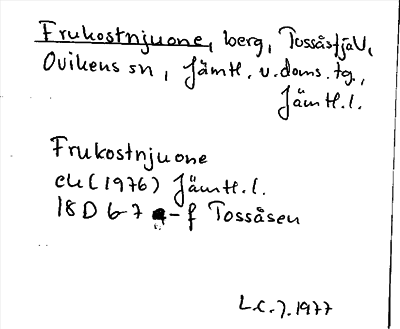 Frukostnjuone, berg, Tossåsfjäll,
Ovikens sn, Jämtl. v. doms. tg.,
Jämtl. l.
Frukostnjuone
ek (1976) Jämtl. l.
18 D 6-7 e-f Tossåsen
L.C.J. 1977